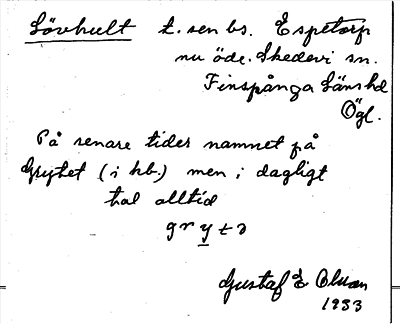 Lövhult t. sen bs. Espetorp
nu öde. Skedevi sn.
Finspånga Läns hd
Ögl.
På senare tider namnet på
Grytet (i kb.) men i dagligt
tal alltid
gryt
Gustaf E. Olsson
1933